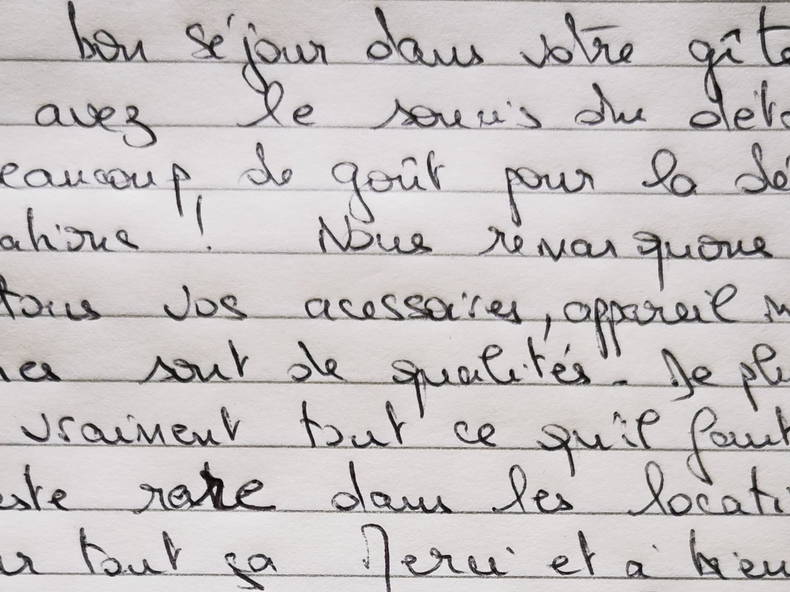 bon séjour dans votre gîte
avez le soucis du déta
eaucoup de goût pour la dé
ations ! Nous remarquons
tous vos acessoires, appareil m
es sont de qualités. De pl
vraiment tout ce qu'il faut
ste rare dans les locati
ur tout ça Merci et à bien